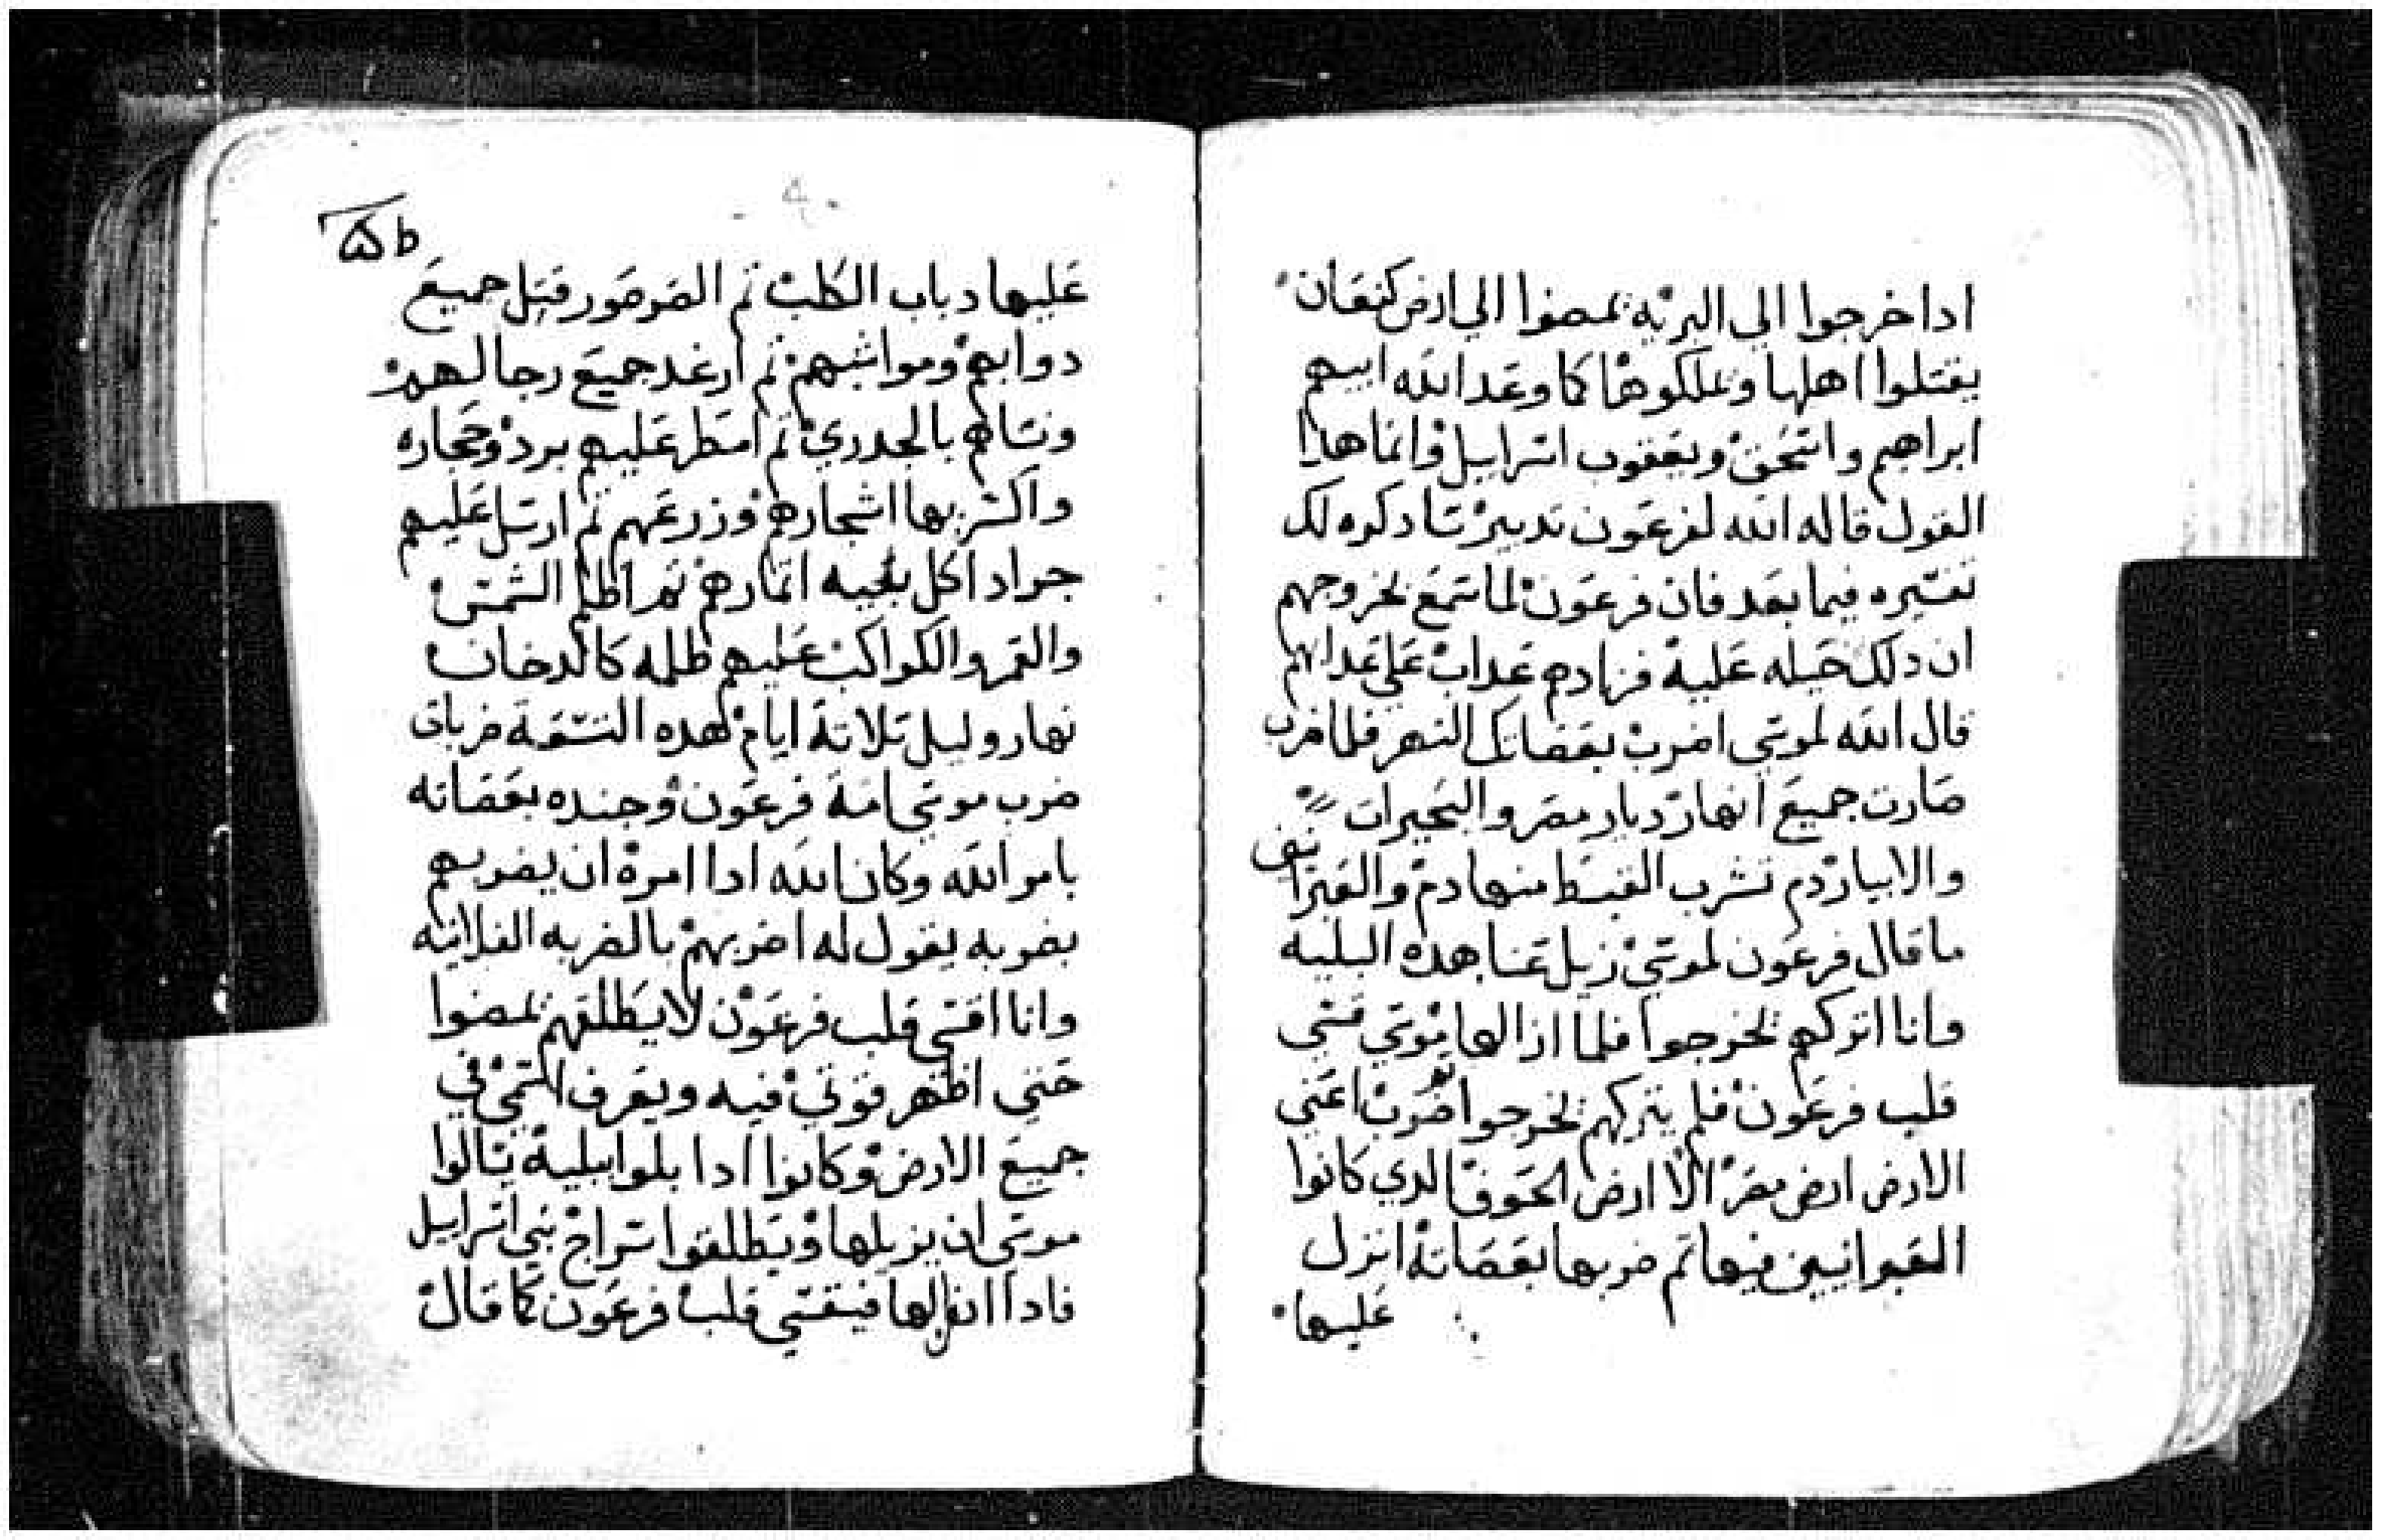 ادا خرجوا الي البريه يمضوا الي ارض كنعان
يقتلوا اهلها ويملكوها كما وعد الله ابيهم
ابراهيم واسحق ويعقوب اسراييل وانما هدا
القول قاله الله لفرعون تدبير سادكره لك
تفسيره فيما بعد فان فرعون لما سمع بخروجهم
ان دلك حيله عليه فزادهم عداب علي عدابهم
قال الله لموسي اضرب بعصاتك النهر فلما ضرب
صارت جميع انهار ديار مصر والبحيرات
والابيار دم تشرب القبط منها دم والعبرانيين
ما قال فرعون لموسي زيل عنا هده البليه
وانا اتركهم يخرجوا فلما ازالها موسي قسي
قلب فرعون فلم يتركهم يخرجوا ضرب اعني
الارض ارض مصر الا ارض الحوف الدي كانوا
العبرانيين فيها تم ضربها بعصاته انزل
عليها
عليها دباب الكلب تم الصرصور قتل جميع
دوابهم ومواشيهم تم ارغد جميع رجالهم
ونساهم بالجدري تم امطر عليهم برد وحجاره
واكسر بها اشجارهم وزرعهم تم ارسل عليهم
جراد اكل بقيه اتمارهم تم اظلم الشمس
والقمر والكواكب عليهم ظلمه كالدخان
نهار وليل تلاتة ايام هده التسعة ضربات
ضرب موسي امة فرعون وجنده بعصاته
بامر الله وكان الله ادا امره ان يضربهم
بضربه يقول له اضربهم بالضربه الفلانيه
وانا اقسي قلب فرعون لا يطلقهم يمضوا
حتي اظهر قوتي فيه ويعرف اسمي في
جميع الارض وكانوا ادا بلوا ببلية يسالوا
موسي ان يزيلها ويطلقوا سراح بني اسراييل
فادا ازالها فيقسي قلب فرعون كما قال